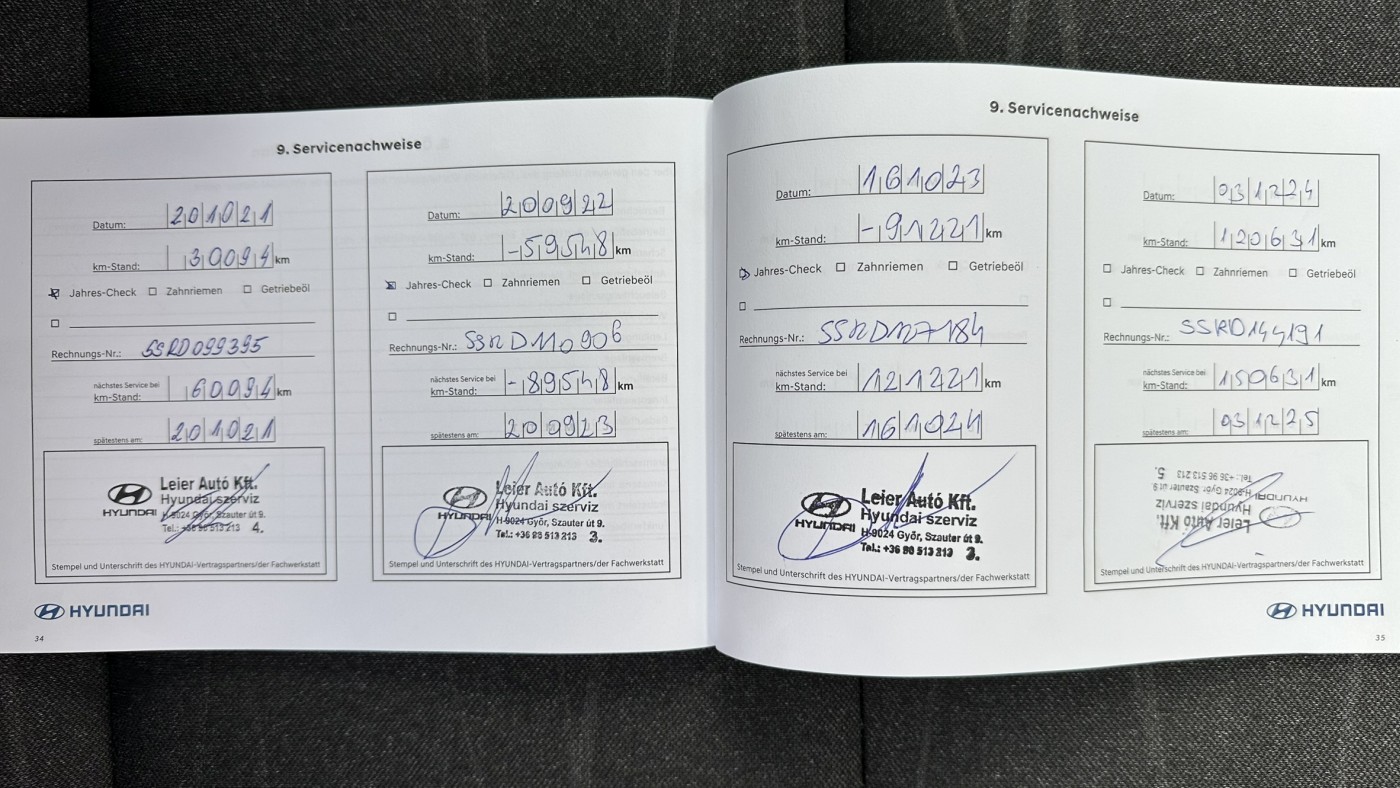 9. Servicenachweise
Datum: 201021
km-Stand: 30094 km
Jahres-Check Zahnriemen Getriebeöl
Rechnungs-Nr.: SSRD099395
nächstes Service bei
km-Stand: 60094 km
spätestens am: 201021
HYUNDAI
Leier Autó Kft.
Hyundai szerviz
H-9024 Győr, Szauter út 9.
Tel.: +36 96 513 213 4.
Stempel und Unterschrift des HYUNDAI-Vertragspartners/der Fachwerkstatt
Datum: 200922
km-Stand: -59548 km
Jahres-Check Zahnriemen Getriebeöl
Rechnungs-Nr.: SSRD110906
nächstes Service bei
km-Stand: -89548 km
spätestens am: 200923
HYUNDAI
Leier Autó Kft.
Hyundai szerviz
H-9024 Győr, Szauter út 9.
Tel.: +36 96 513 213 3.
Stempel und Unterschrift des HYUNDAI-Vertragspartners/der Fachwerkstatt
HYUNDAI
34
9. Servicenachweise
Datum: 161023
km-Stand: -91221 km
Jahres-Check Zahnriemen Getriebeöl
Rechnungs-Nr.: SSRD127184
nächstes Service bei
km-Stand: 121221 km
spätestens am: 161024
HYUNDAI
Leier Autó Kft.
Hyundai szerviz
H-9024 Győr, Szauter út 9.
Tel.: +36 96 513 213 3.
Stempel und Unterschrift des HYUNDAI-Vertragspartners/der Fachwerkstatt
Datum: 031224
km-Stand: 120631 km
Jahres-Check Zahnriemen Getriebeöl
Rechnungs-Nr.: SSRD144191
nächstes Service bei
km-Stand: 150631 km
spätestens am: 031225
Leier Autó Kft.
Hyundai szerviz
HYUNDAI H-9024 Győr, Szauter út 9.
Tel.: +36 96 513 213 5.
Stempel und Unterschrift des HYUNDAI-Vertragspartners/der Fachwerkstatt
HYUNDAI
35